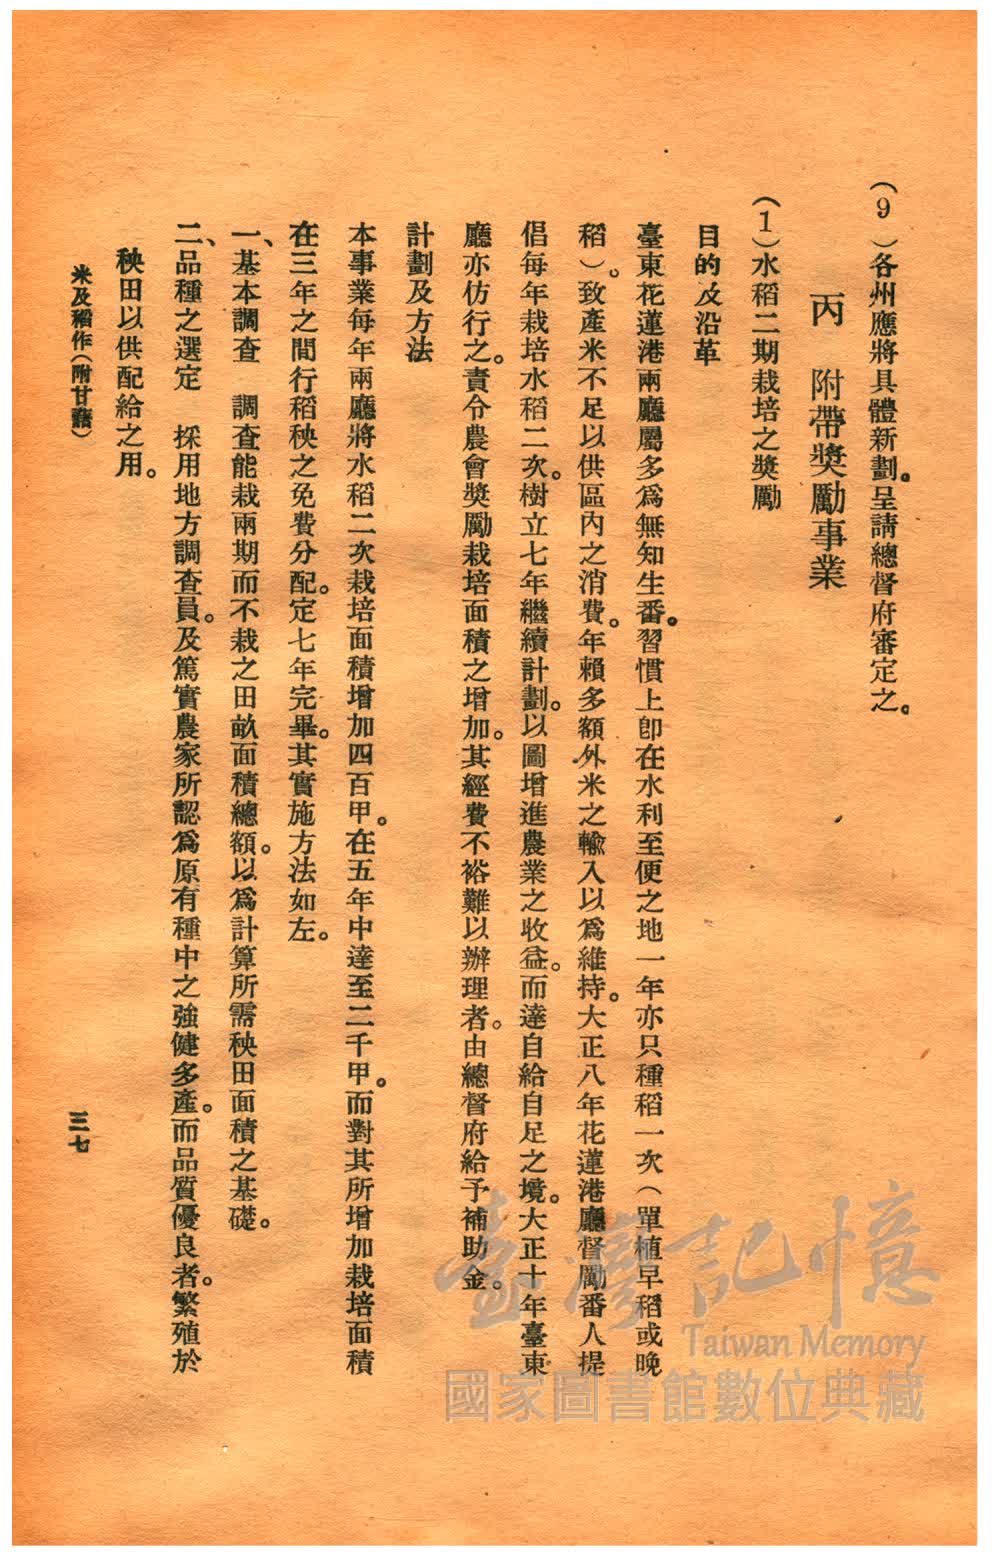 （9）各州應將具體新劃。呈請總督府審定之。
丙　附帶獎勵事業
（1）水稻二期栽培之獎勵
目的及沿革
臺東花蓮港兩廳屬多爲無知生番。習慣上卽在水利至便之地一年亦只種稻一次（單植早稻或晚
稻）。致產米不足以供區內之消費。年賴多額外米之輸入以爲維持。大正八年花蓮港廳督勵番人提
倡每年栽培水稻二次。樹立七年繼續計劃。以圖增進農業之收益。而達自給自足之境。大正十年臺東
廳亦仿行之。責令農會獎勵栽培面積之增加。其經費不裕難以辦理者。由總督府給予補助金。
計劃及方法
本事業每年兩廳將水稻二次栽培面積增加四百甲。在五年中達至二千甲。而對其所增加栽培面積
在三年之間行稻秧之免費分配。定七年完畢。其實施方法如左。
一、基本調查　調查能栽兩期而不栽之田畝面積總額。以爲計算所需秧田面積之基礎。
二、品種之選定　採用地方調查員。及篤實農家所認爲原有種中之強健多產。而品質優良者。繁殖於
秧田以供配給之用。
米及稻作（附甘藷）
三七
臺灣記憶
Taiwan Memory
國家圖書館數位典藏